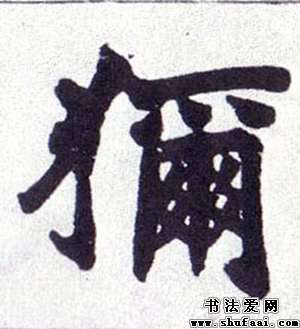 獮
书法爱网
www.shufaai.com